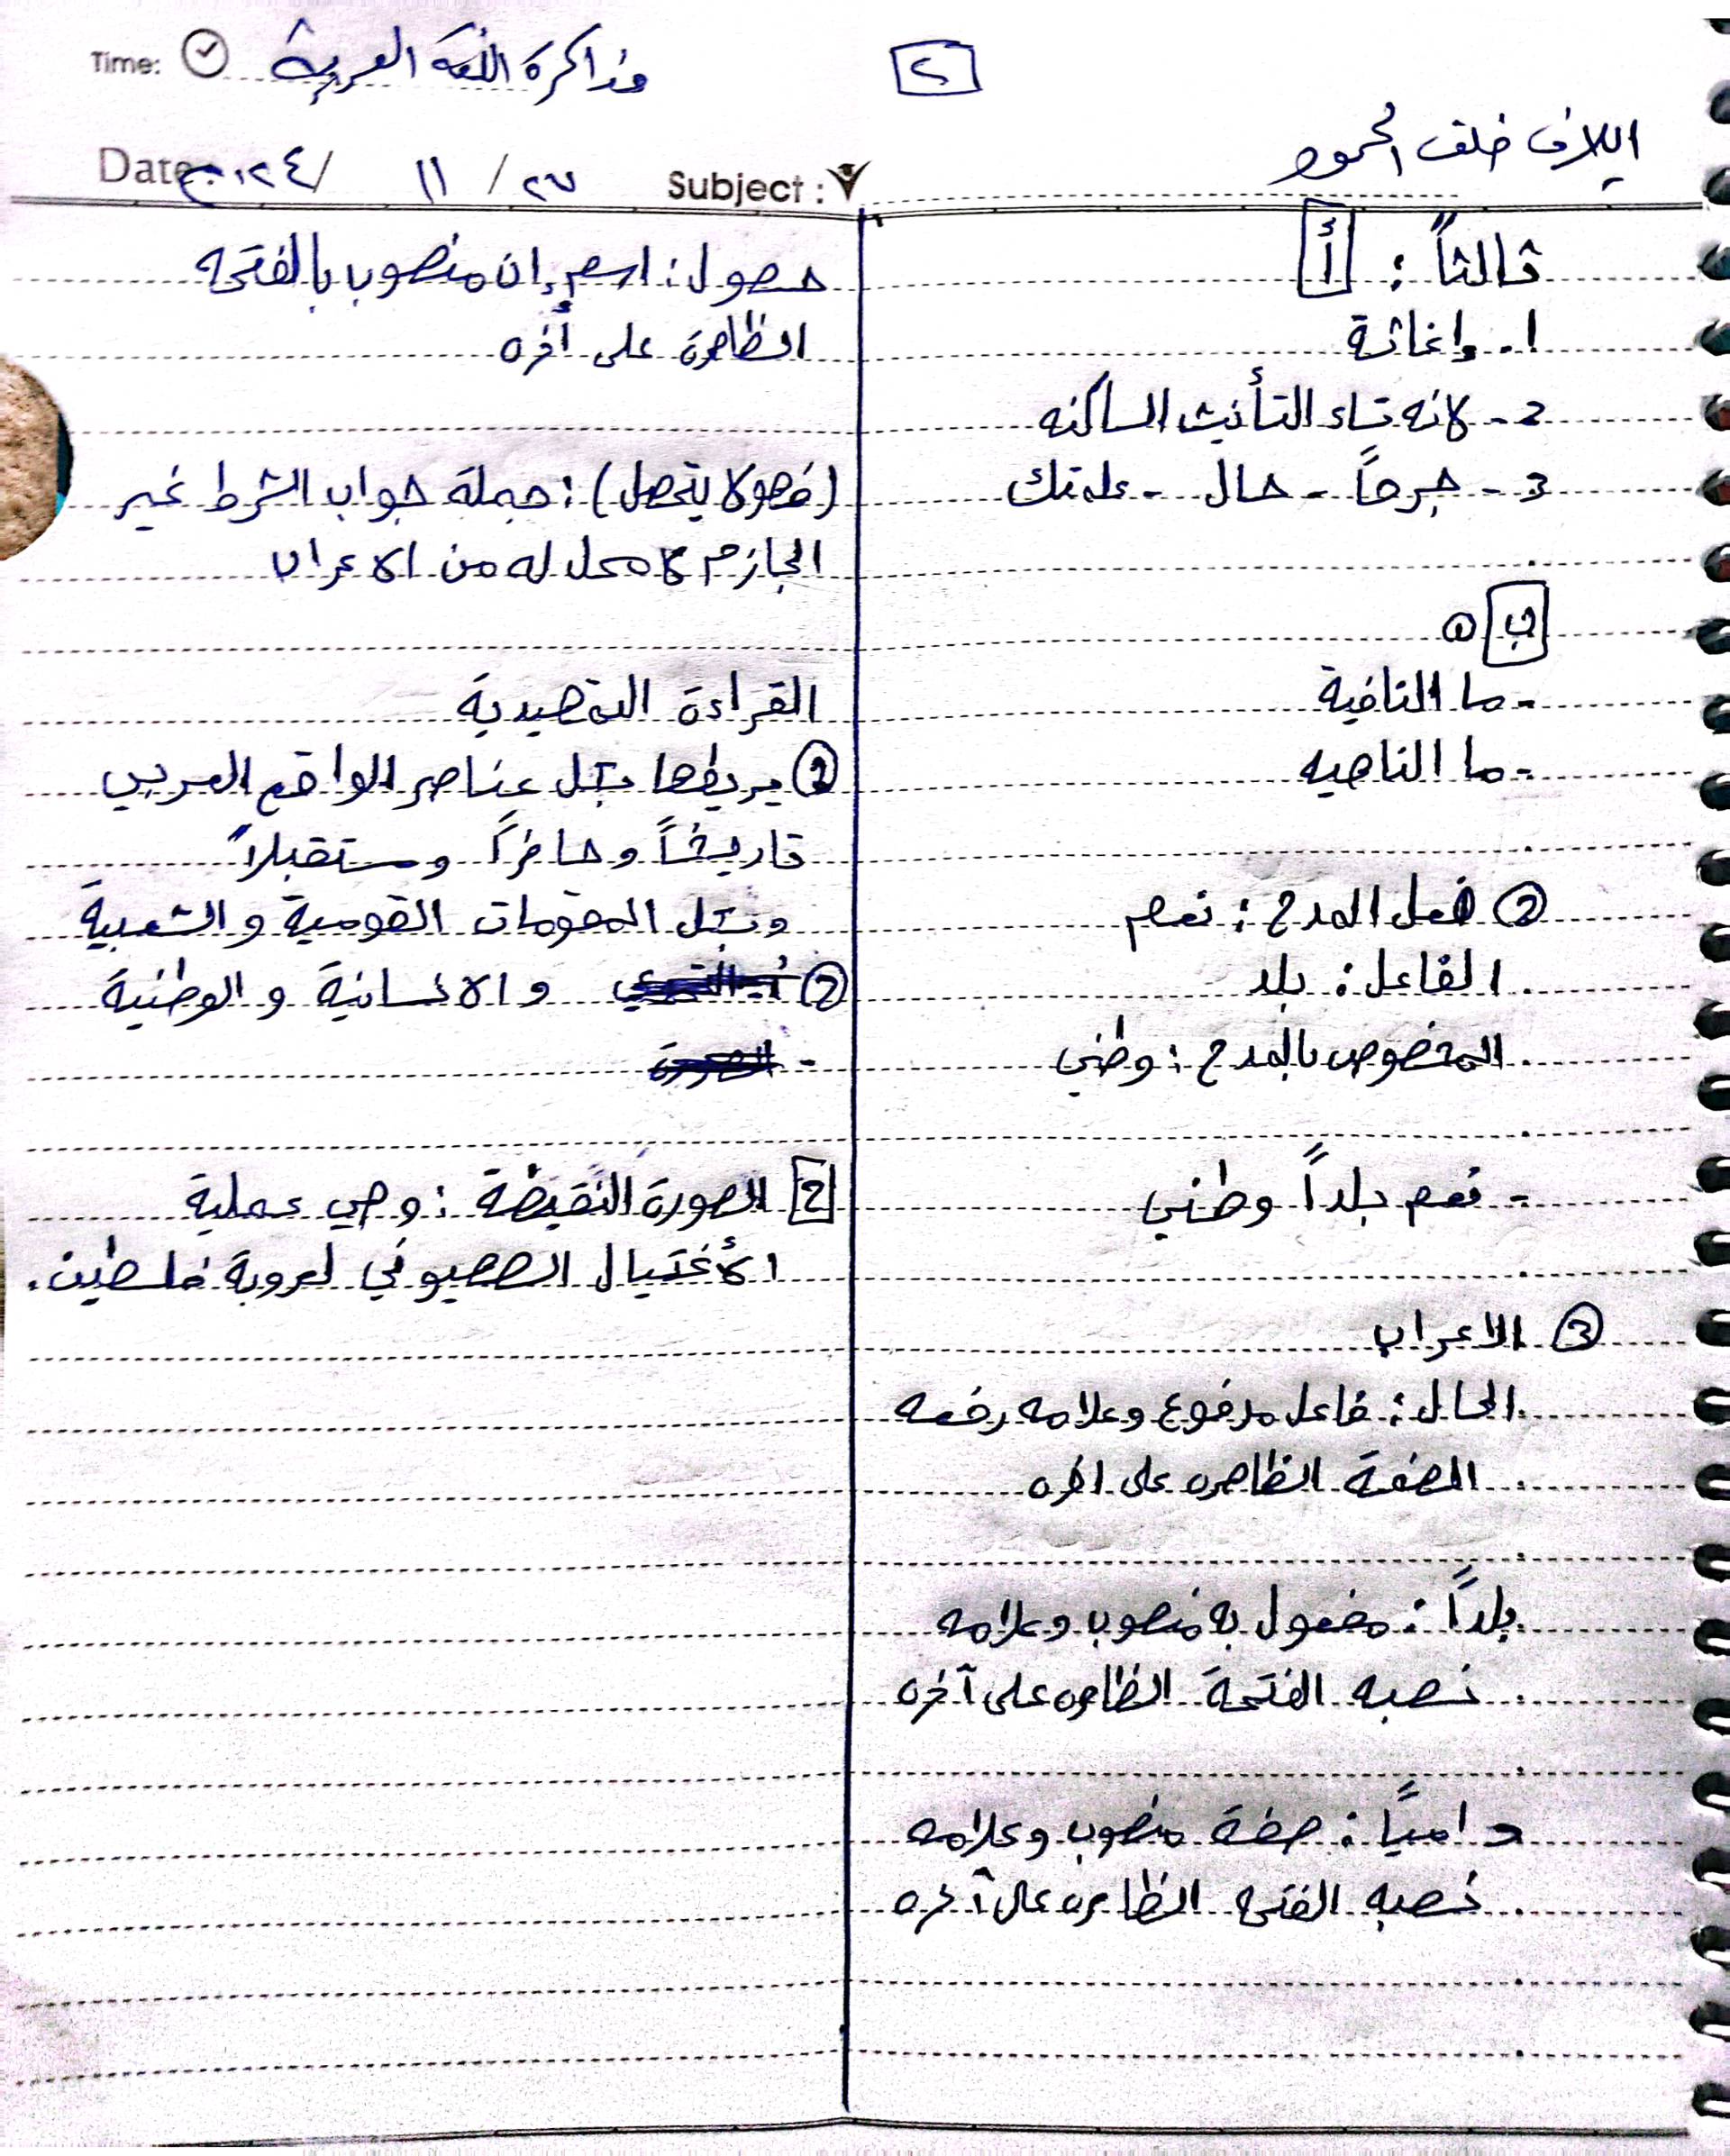 Time: مذاكرة اللغة العربية
٢
خلف المحمود
Date: ٢٠٢٤/ ١١ / ٢٧ Subject:
ثالثاً : أ
١. إغاثة
2- لانه تاء التأنيث الساكنه
3- جرحاً - حال -
ب ①
- ما النافية
- ما الناهيه
② فعل المدح : نعم
الفاعل : بلد
المخصوص بالمدح : وطني
- نعم بلداً وطني
③ الاعراب
الحال : فاعل مرفوع وعلامه رفعه
الضمة الظاهره على اخره
بلداً : مفعول به منصوب وعلامه
نصبه الفتحة الظاهره على آخره
داميًا : صفة منصوب وعلامه
نصبه الفتحه الظاهره على آخره
حصول : اسم إن منصوب بالفتحه
الظاهرة على أخره
(فهو لا يتحصل) : جملة جواب الشرط غير
الجازم لا محل له من الاعراب
القراءة التمهيدية
① يربطها بكل عناصر الواقع العربي
تاريخاً وحاضراً ومستقبلاً
وبكل المقومات القومية والشعبية
② والانسانية والوطنية
-
2 الصورة النقيضة : وهي عملية
الأغتيال الصهيوني لعروبة فلسطين.